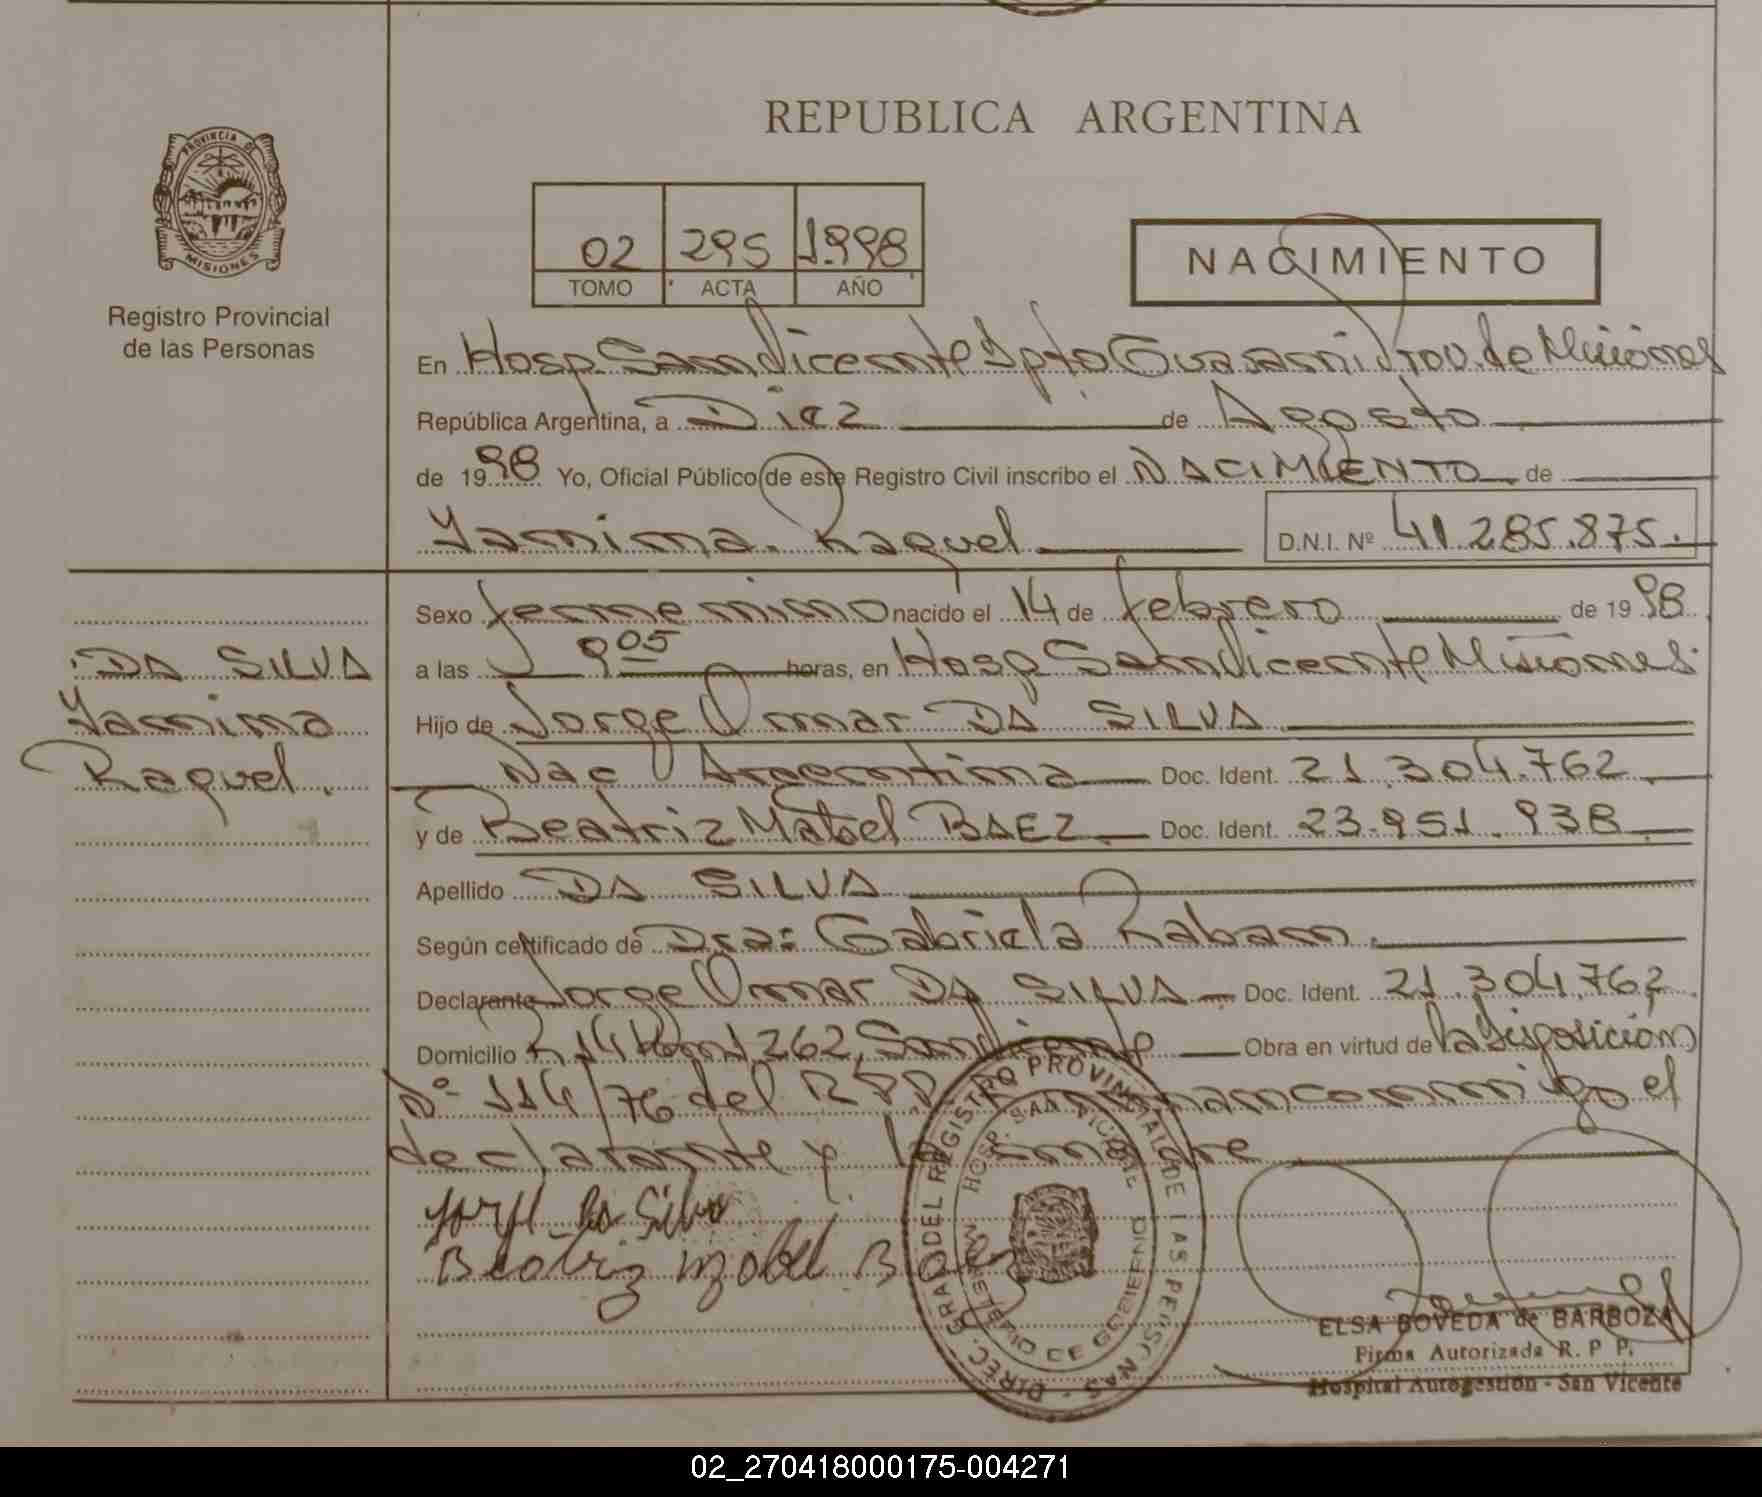 REPUBLICA ARGENTINA
PROVINCIA DE
MISIONES
Registro Provincial
de las Personas
02 295 1998
TOMO ACTA AÑO
NACIMIENTO
En Hosp San Vicente Dpto Guarani Prov. de Misiones
República Argentina, a Diez de Agosto
de 1998 Yo, Oficial Público de este Registro Civil inscribo el NACIMIENTO de
Yanima Raquel D.N.I. Nº 41.285.875.
Sexo femenino nacido el 14 de febrero de 1998
a las 9 05 horas, en Hosp San Vicente Misiones
DA SILVA
Yanima
Raquel.
Hijo de Jorge Omar DA SILVA
Nac Argentina Doc. Ident. 21.304.762
y de Beatriz Mabel BAEZ Doc. Ident. 23.951.938
Apellido DA SILVA
Según certificado de Dra: Gabriela Raban
Declarante Jorge Omar DA SILVA Doc. Ident. 21.304.762
Domicilio R 14 Km 1262 San Vicente Obra en virtud de la disposición
Nº 114/76 del RPP conmigo el
declarante y la madre
Beatriz Mabel B
DIREC. GRAL DEL REGISTRO PROVINCIAL DE LAS PERSONAS
HOSP. SAN VICENTE
MINISTERIO DE GOBIERNO
ELSA BOVEDA de BARBOZA
Firma Autorizada R. P P.
Hospital Autogestión - San Vicente
02_270418000175-004271